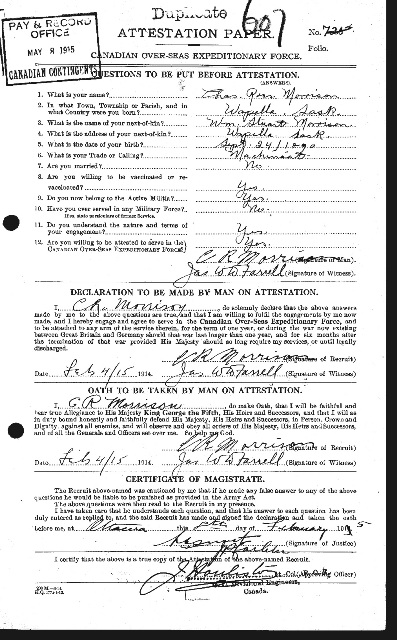 Duplicate
607
PAY & RECORD
OFFICE
MAY 8 1915
CANADIAN CONTINGENT
ATTESTATION PAPER.
No.
Folio.
CANADIAN OVER-SEAS EXPEDITIONARY FORCE.
QUESTIONS TO BE PUT BEFORE ATTESTATION.
(ANSWERS)
1. What is your name? Chas. Ross Morrison
2. In what Town, Township or Parish, and in
what Country were you born? Wapella Sask.
3. What is the name of your next-of-kin? Wm. Stuart Morrison
4. What is the address of your next-of-kin? Wapella Sask
5. What is the date of your birth? Sept 24/1890
6. What is your Trade or Calling? Machinist
7. Are you married? No
8. Are you willing to be vaccinated or re-
vaccinated? Yes
9. Do you now belong to the Active Militia? Yes.
10. Have you ever served in any Military Force? No.
If so, state particulars of former Service.
11. Do you understand the nature and terms of
your engagement? Yes.
12. Are you willing to be attested to serve in the
CANADIAN OVER-SEAS EXPEDITIONARY FORCE? Yes.
C R Morrison (Signature of Man).
Jas W D Farrell (Signature of Witness).
DECLARATION TO BE MADE BY MAN ON ATTESTATION.
I, C R Morrison, do solemnly declare that the above answers
made by me to the above questions are true, and that I am willing to fulfil the engagements by me now
made, and I hereby engage and agree to serve in the Canadian Over-Seas Expeditionary Force, and
to be attached to any arm of the service therein, for the term of one year, or during the war now existing
between Great Britain and Germany should that war last longer than one year, and for six months after
the termination of that war provided His Majesty should so long require my services, or until legally
discharged.
C R Morrison (Signature of Recruit)
Date Feb 4/15 1914. Jas W D Farrell (Signature of Witness)
OATH TO BE TAKEN BY MAN ON ATTESTATION.
I, C R Morrison, do make Oath, that I will be faithful and
bear true Allegiance to His Majesty King George the Fifth, His Heirs and Successors, and that I will as
in duty bound honestly and faithfully defend His Majesty, His Heirs and Successors, in Person, Crown and
Dignity, against all enemies, and will observe and obey all orders of His Majesty, His Heirs and Successors,
and of all the Generals and Officers set over me. So help me God.
C R Morrison (Signature of Recruit)
Date Feb 4/15 1914. Jas W D Farrell (Signature of Witness)
CERTIFICATE OF MAGISTRATE.
The Recruit above named was cautioned by me that if he made any false answer to any of the above
questions he would be liable to be punished as provided in the Army Act.
The above questions were then read to the Recruit in my presence.
I have taken care that he understands each question, and that his answer to each question has been
duly entered as replied to, and the said Recruit has made and signed the declaration and taken the oath
before me, at Ottawa this day of February 1915
(Signature of Justice)
I certify that the above is a true copy of the Attestation of the above-named Recruit.
(Approving Officer)
Divisional Engineers,
Canada.